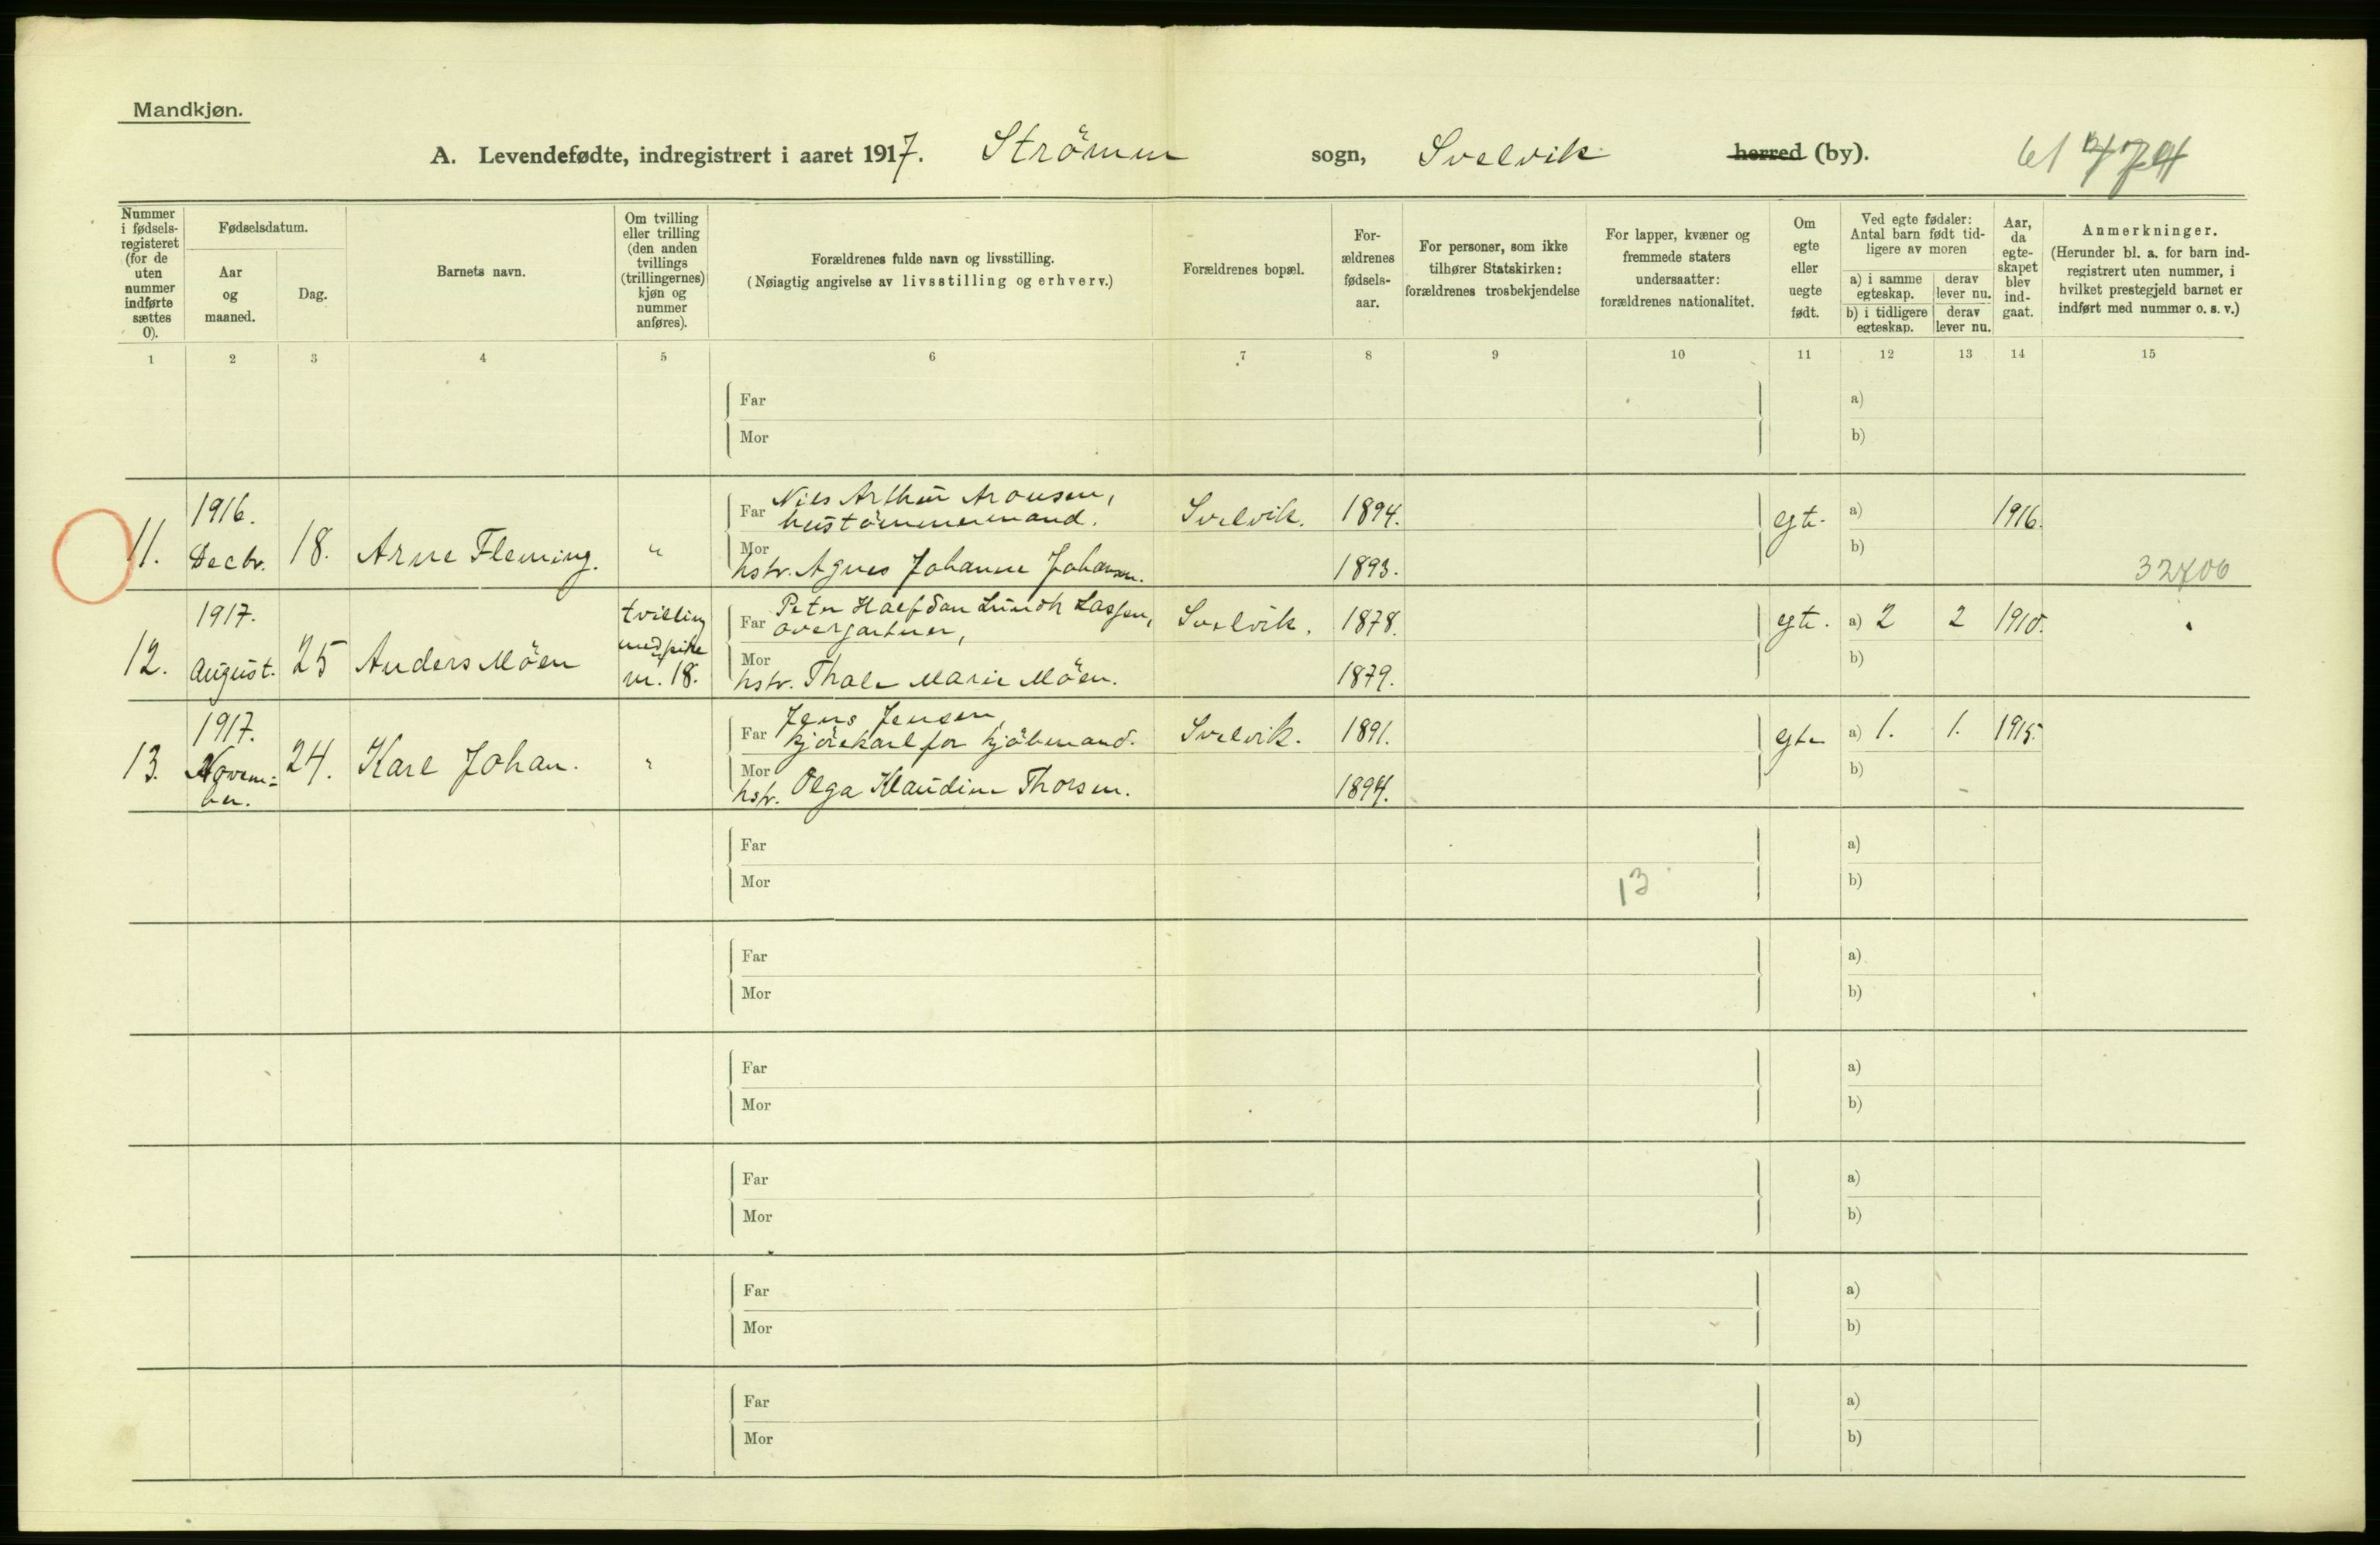 Mandkjøn.
A. Levendefødte, indregistrert i aaret 1917. Strömm sogn, Svelvik herred (by).
Nummer i fødsels-registeret (for de uten nummer indførte sættes 0).
Fødselsdatum.
Aar og maaned.
Dag.
Barnets navn.
Om tvilling eller trilling (den anden tvillings (trillingernes) kjøn og nummer anføres).
Forældrenes fulde navn og livsstilling.
(Nøiagtig angivelse av livsstilling og erhverv.)
Forældrenes bopæl.
For-ældrenes fødsels-aar.
For personer, som ikke tilhører Statskirken: forældrenes trosbekjendelse
For lapper, kvæner og fremmede staters undersaatter: forældrenes nationalitet.
Om egte eller uegte født.
Ved egte fødsler: Antal barn født tid-ligere av moren
a) i samme egteskap.
derav lever nu.
b) i tidligere egteskap.
derav lever nu.
Aar, da egte-skapet blev ind-gaat.
Anmerkninger.
(Herunder bl. a. for barn ind-registrert uten nummer, i hvilket prestegjeld barnet er indført med nummer o. s. v.)
1 2 3 4 5 6 7 8 9 10 11 12 13 14 15
Far a)
Mor b)
11. 1916. Decbr. 18. Arne Fleming. "
Far Nils Arthur Aronsen, hustömmermand. Svelvik. 1894. egte. a) 1916.
Mor hstr. Agnes Johanne Johansen. 1893. b) 32406
12. 1917. August. 25 Anders Möen tvilling med pike nr. 18.
Far Peter Halfdan Lundh Lassen, overgartner, Svelvik. 1878. egte. a) 2 2 1910.
Mor hstr. Thale Marie Möen. 1879. b)
13. 1917. Novem-ber. 24. Karl Johan. "
Far Jens Jensen, kjörekarl for kjöbmand. Svelvik. 1891. egte a) 1. 1. 1915.
Mor hstr. Olga Klaudine Thorsen. 1894. b)
Far a)
Mor 13 b)
Far a)
Mor b)
Far a)
Mor b)
Far a)
Mor b)
Far a)
Mor b)
Far a)
Mor b)